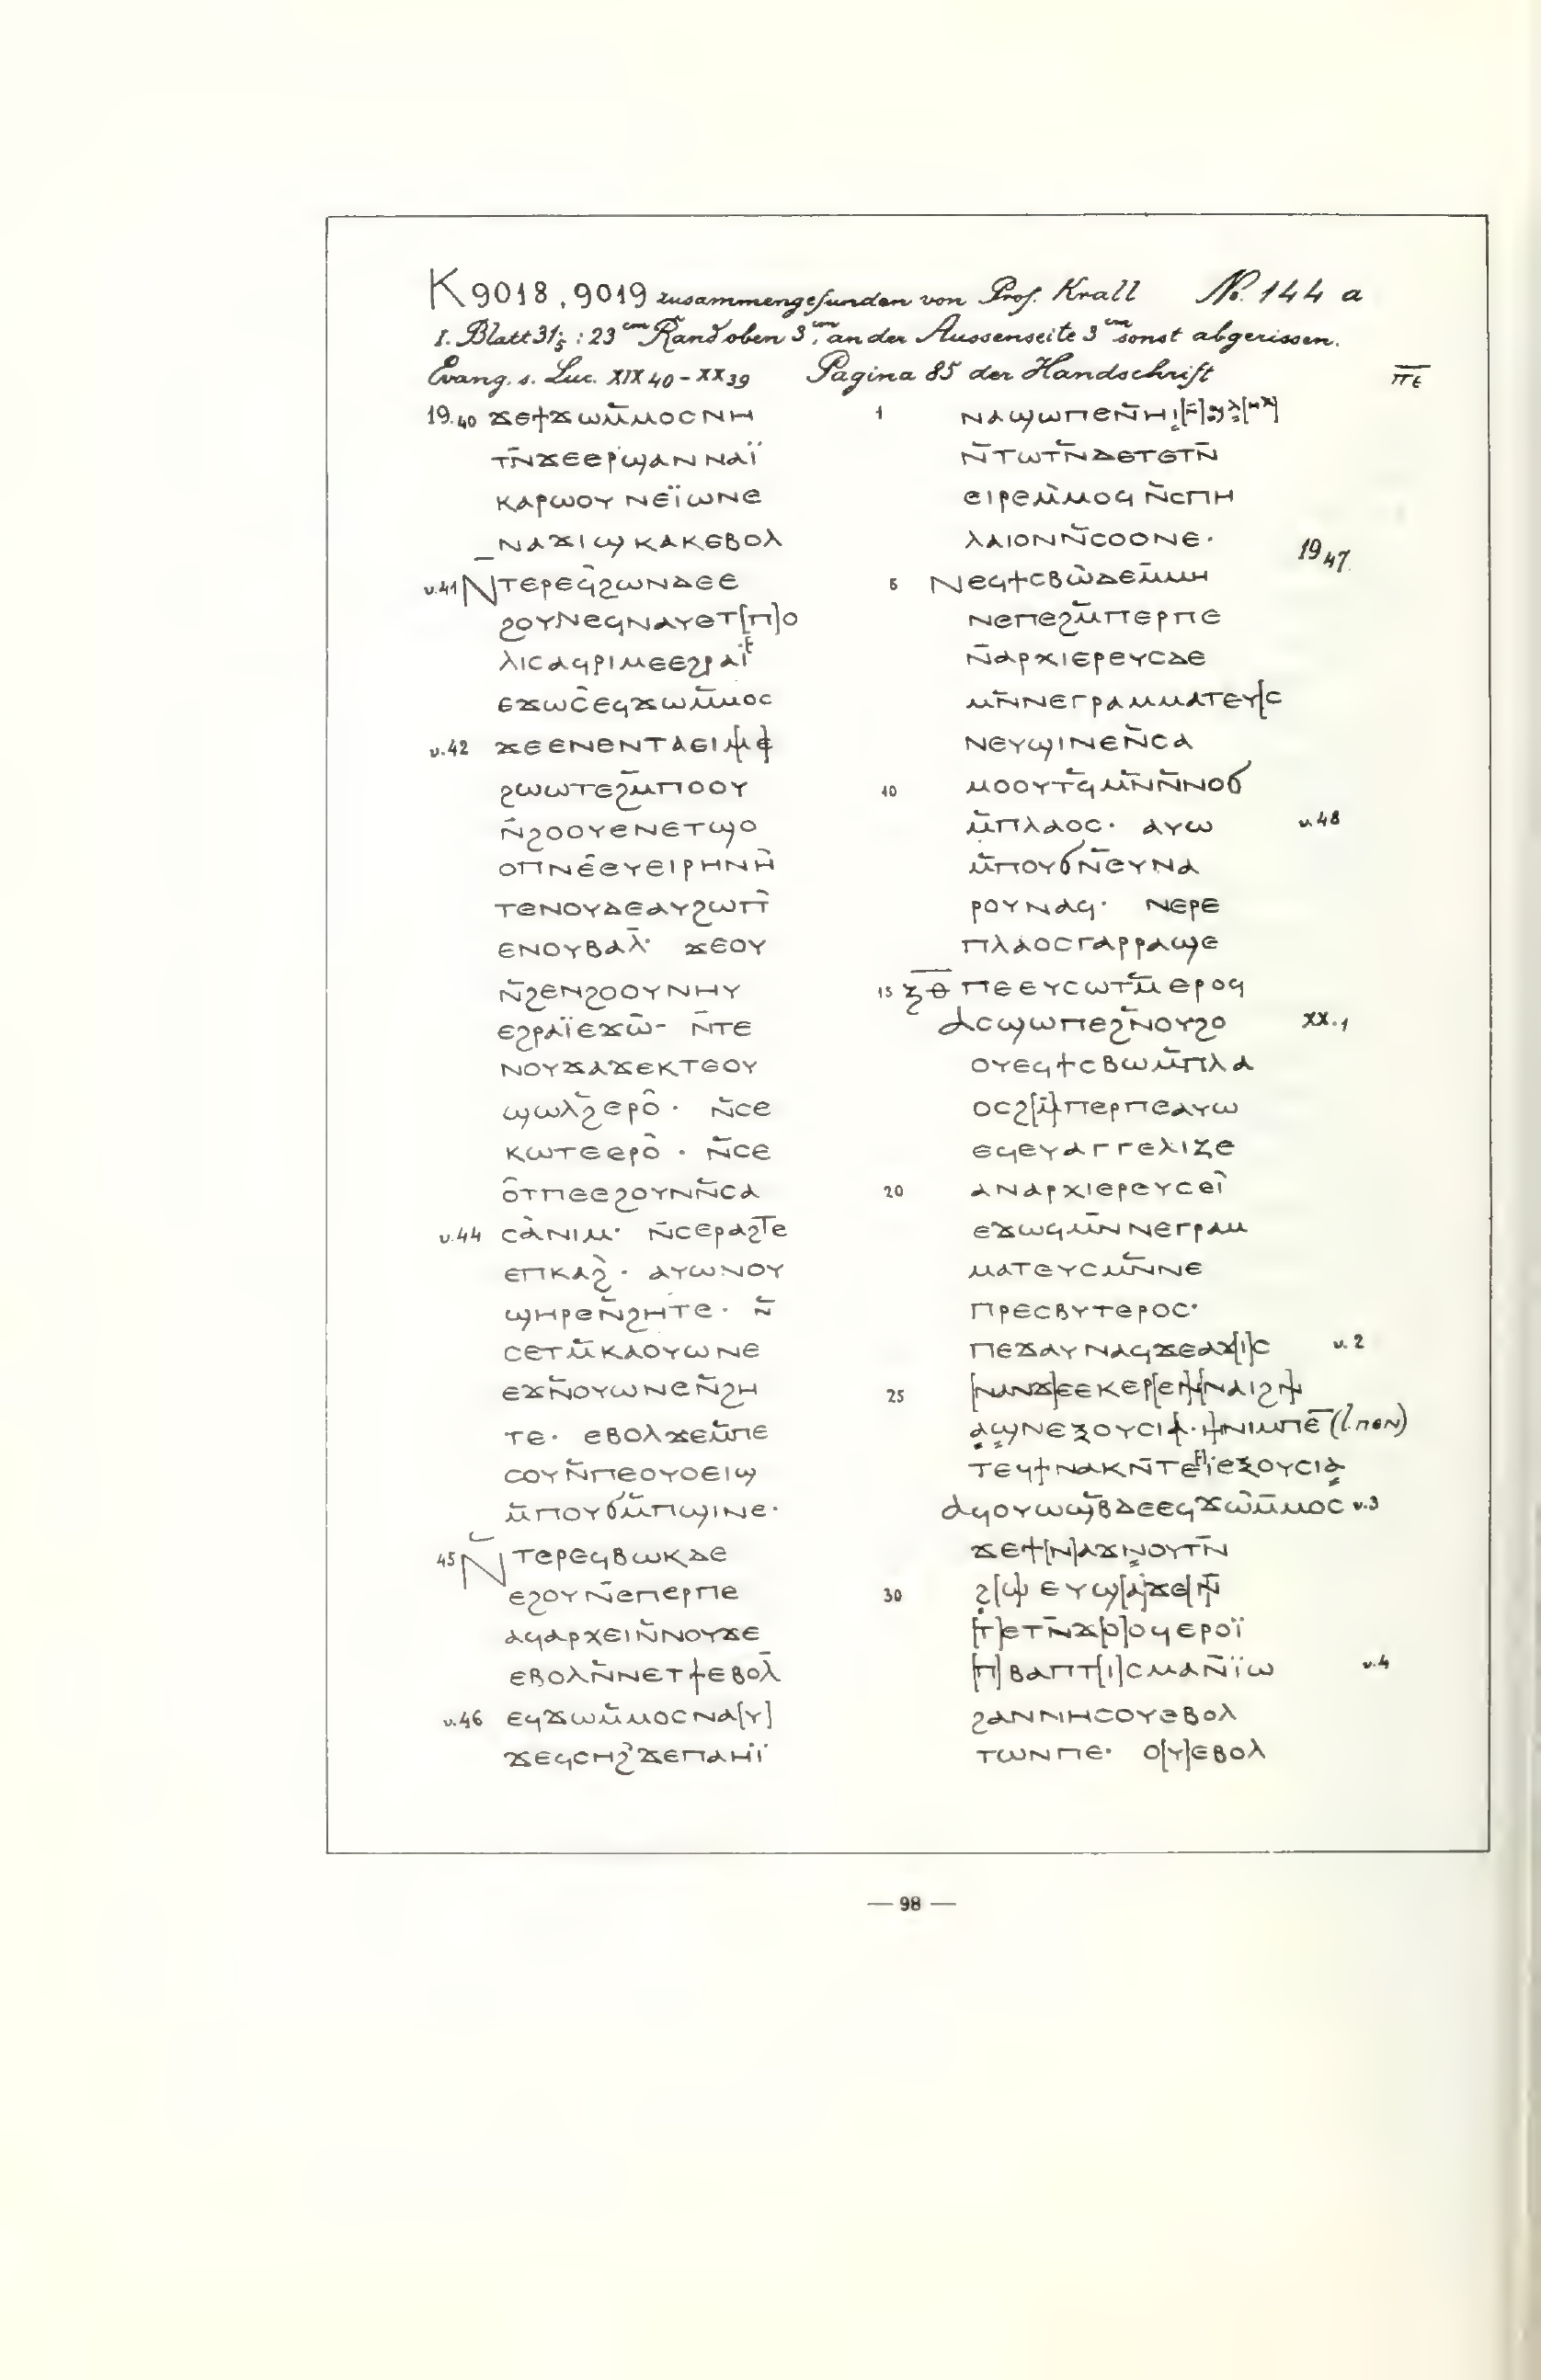 K 9018, 9019 zusammengefunden von Prof. Krall No. 144 a
1. Blatt 31,5 : 23 cm Rand oben 3 cm, an der Aussenseite 3 cm sonst abgerissen.
Evang. s. Luc. XIX 40 - XX 39 Pagina 85 der Handschrift π̅ε̅
19.40 ϫⲉϯϫⲱⲙ̄ⲙⲟⲥⲛⲏ
ⲧⲛ̄ϫⲉⲉⲣϣⲁⲛⲛⲁⲓ̈
ⲕⲁⲣⲱⲟⲩ ⲛⲉⲓ̈ⲱⲛⲉ
ⲛⲁϫⲓϣⲕⲁⲕⲉⲃⲟⲗ
v.41 Ⲛⲧⲉⲣⲉϥ̂ϩⲱⲛⲇⲉⲉ
ϩⲟⲩⲛⲉϥⲛⲁⲩⲉⲧ[ⲡ]ⲟ
ⲗⲓⲥⲁϥⲣⲓⲙⲉⲉϩⲣⲁⲓ̈
ⲉϫⲱⲥ̂ⲉϥϫⲱⲙ̄ⲙⲟⲥ
v.42 ϫⲉⲉⲛⲉⲛⲧⲁⲉⲓⲙ[ⲉ]
ϩⲱⲱⲧⲉϩⲙ̄ⲡⲟⲟⲩ
ⲛ̄ϩⲟⲟⲩⲉⲛⲉⲧϣⲟ
ⲟⲡⲛⲉ̂ⲉⲩⲉⲓⲣⲏⲛⲏ̂
ⲧⲉⲛⲟⲩⲇⲉⲁⲩϩⲱⲡ̂
ⲉⲛⲟⲩⲃⲁⲗ̄· ϫⲉⲟⲩ
ⲛ̄ϩⲉⲛϩⲟⲟⲩⲛⲏⲩ
ⲉϩⲣⲁⲓ̈ⲉϫⲱ̂- ⲛ̄ⲧⲉ
ⲛⲟⲩϫⲁϫⲉⲕⲧⲉⲟⲩ
ϣⲱⲗϩ̄ⲉⲣⲟ̂· ⲛ̄ⲥⲉ
ⲕⲱⲧⲉⲉⲣⲟ̂· ⲛ̄ⲥⲉ
ⲟ̂ⲧⲡⲉⲉϩⲟⲩⲛⲛ̄ⲥⲁ
v.44 ⲥⲁ̀ⲛⲓⲙ· ⲛ̄ⲥⲉⲣⲁϩⲧ̄ⲉ
ⲉⲡⲕⲁϩ̀· ⲁⲩⲱⲛⲟⲩ
ϣⲏⲣⲉⲛ̄ϩⲏⲧⲉ· ⲛ̄
ⲥⲉⲧⲙ̄ⲕⲁⲟⲩⲱⲛⲉ
ⲉϫⲛ̄ⲟⲩⲱⲛⲉⲛ̄ϩⲏ
ⲧⲉ· ⲉⲃⲟⲗϫⲉⲙ̄ⲡⲉ
ⲥⲟⲩⲛ̄ⲡⲉⲟⲩⲟⲉⲓϣ
ⲙ̄ⲡⲟⲩϭⲙ̄ⲡϣⲓⲛⲉ·
45 Ⲛ̄ⲧⲉⲣⲉϥⲃⲱⲕⲇⲉ
ⲉϩⲟⲩⲛ̄ⲉⲡⲉⲣⲡⲉ
ⲁϥⲁⲣⲭⲉⲓⲛ̄ⲛⲟⲩϫⲉ
ⲉⲃⲟⲗⲛ̄ⲛⲉⲧϯⲉⲃⲟⲗ̄
v.46 ⲉϥϫⲱⲙ̄ⲙⲟⲥⲛⲁ[ⲩ]
ϫⲉϥⲥⲏϩ̀ϫⲉⲡⲁⲏⲓ̈
1 ⲛⲁϣⲱⲡⲉⲛ̄ⲏⲓ[ⲛ̄]ϣⲗ[ⲏⲗ]
ⲛ̄ⲧⲱⲧⲛ̄ⲇⲉⲧⲉⲧⲛ̄
ⲉⲓⲣⲉⲙ̄ⲙⲟϥ ⲛ̄ⲥⲡⲏ
ⲗⲁⲓⲟⲛⲛ̄ⲥⲟⲟⲛⲉ· 19 47.
5 Ⲛⲉϥϯⲥⲃⲱ̀ⲇⲉⲙ̄ⲙⲏ
ⲛⲉⲡⲉϩⲙ̄ⲡⲉⲣⲡⲉ
ⲛ̄ⲁⲣⲭⲓⲉⲣⲉⲩⲥⲇⲉ
ⲙⲛ̄ⲛⲉⲅⲣⲁⲙⲙⲁⲧⲉⲩ[ⲥ
ⲛⲉⲩϣⲓⲛⲉⲛ̄ⲥⲁ
10 ⲙⲟⲟⲩⲧϥ̄ⲙⲛ̄ⲛ̄ⲛⲟϭ
ⲙ̄ⲡⲗⲁⲟⲥ· ⲁⲩⲱ v.48
ⲙ̄ⲡⲟⲩϭⲛ̄ⲉⲩⲛⲁ
ⲣⲟⲩⲛⲁϥ· ⲛⲉⲣⲉ
ⲡⲗⲁⲟⲥⲅⲁⲣⲣⲁϣⲉ
15 ⲝ̅ⲑ̅ ⲡⲉⲉⲩⲥⲱⲧⲙ̄ⲉⲣⲟϥ
Ⲁⲥϣⲱⲡⲉϩⲛ̄ⲟⲩϩⲟ XX.1
ⲟⲩⲉϥϯⲥⲃⲱⲙ̄ⲡⲗⲁ
ⲟⲥϩ[ⲙ̄]ⲡⲉⲣⲡⲉⲁⲩⲱ
ⲉϥⲉⲩⲁⲅⲅⲉⲗⲓⲍⲉ
20 ⲁⲛⲁⲣⲭⲓⲉⲣⲉⲩⲥⲉⲓ̂
ⲉϫⲱϥⲙⲛ̄ⲛⲉⲅⲣⲁⲙ
ⲙⲁⲧⲉⲩⲥⲙⲛ̄ⲛⲉ
ⲡⲣⲉⲥⲃⲩⲧⲉⲣⲟⲥ·
ⲡⲉϫⲁⲩⲛⲁϥϫⲉⲁϫ[ⲓ]ⲥ v.2
25 [ⲛⲁⲛϫ]ⲉⲉⲕⲉⲣ[ⲉ]ⲛ[ⲛⲁⲓϩⲛ
ⲁϣⲛⲉⲝⲟⲩⲥⲓⲁ·ⲏⲛⲓⲙⲡⲉ̄ (l. ⲡⲉⲛ)
ⲧⲉϥϯⲛⲁⲕⲛ̄ⲧⲉⲓ̈ⲉⲝⲟⲩⲥⲓⲁ
Ⲁϥⲟⲩⲱϣ̄ⲃⲇⲉⲉϥϫⲱ̂ⲙ̄ⲙⲟⲥ v.3
ϫⲉϯ[ⲛ]ⲁϫⲛⲟⲩⲧⲛ̄
30 ϩ[ⲱ] ⲉⲩϣ[ⲁ]ϫⲉ[ⲛ̄
[ⲧ]ⲉⲧⲛ̄ϫ[ⲟ]ⲟϥⲉⲣⲟⲓ̈
[ⲡ]ⲃⲁⲡⲧ[ⲓ]ⲥⲙⲁⲛ̄ⲓ̈ⲱ v.4
ϩⲁⲛⲛⲏⲥⲟⲩⲉⲃⲟⲗ
ⲧⲱⲛⲡⲉ· ⲟ[ⲩ]ⲉⲃⲟⲗ
— 98 —